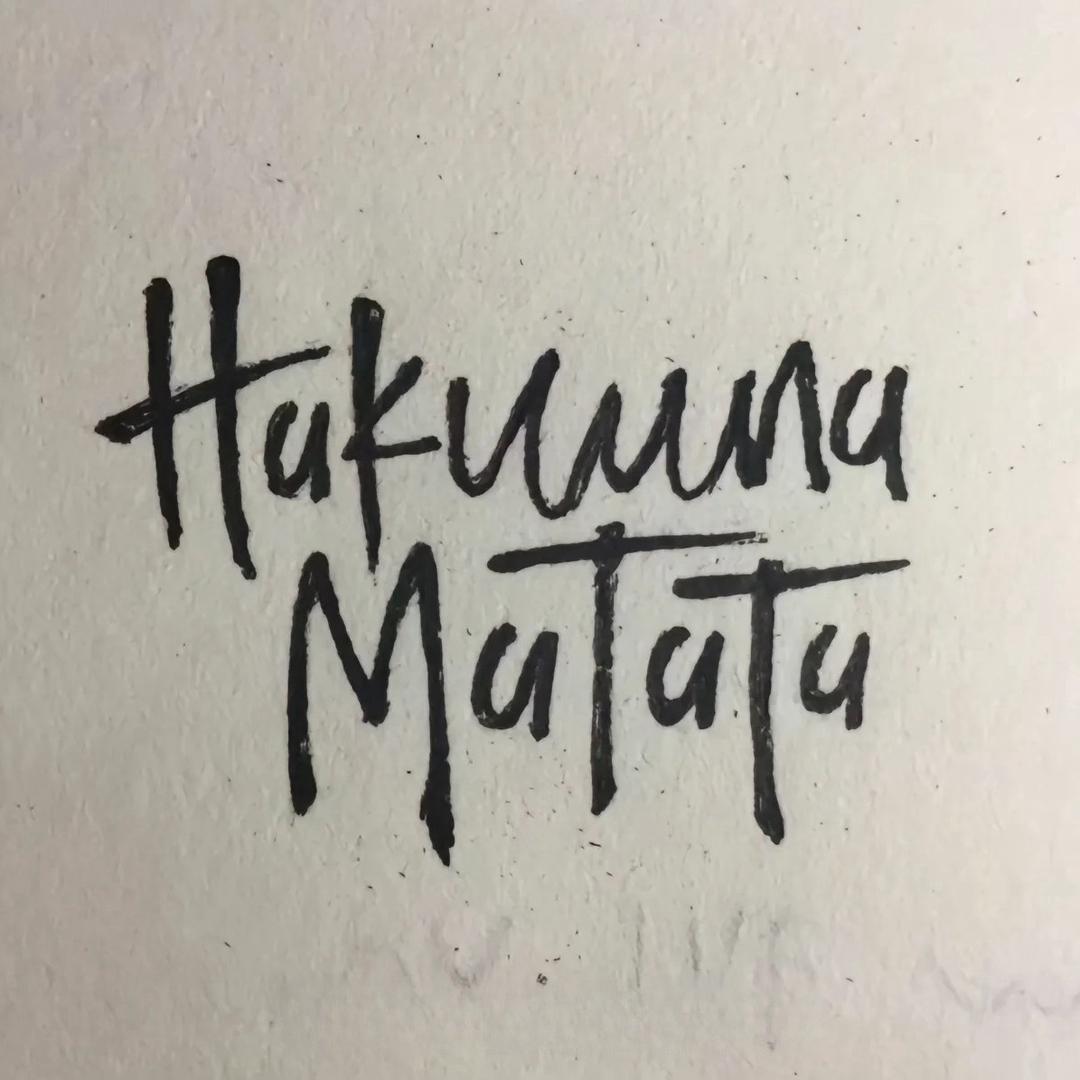 Hakuuna
MaTaTa